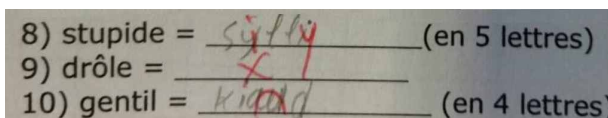 8) stupide = (en 5 lettres)
9) drôle = x
10) gentil = (en 4 lettres)